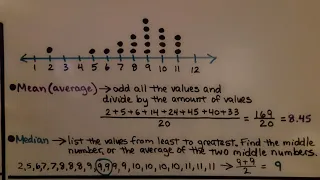 1 2 3 4 5 6 7 8 9 10 11 12
•Mean (average) → add all the values and
divide by the amount of values
2+5+6+14+24+45+40+33 / 20 = 169 / 20 = 8.45
•Median → list the values from least to greatest. Find the middle
number, or the average of the two middle numbers.
2,5,6,7,7,8,8,8,9,9,9,9,9,10,10,10,10,11,11,11 → 9+9 / 2 = 9